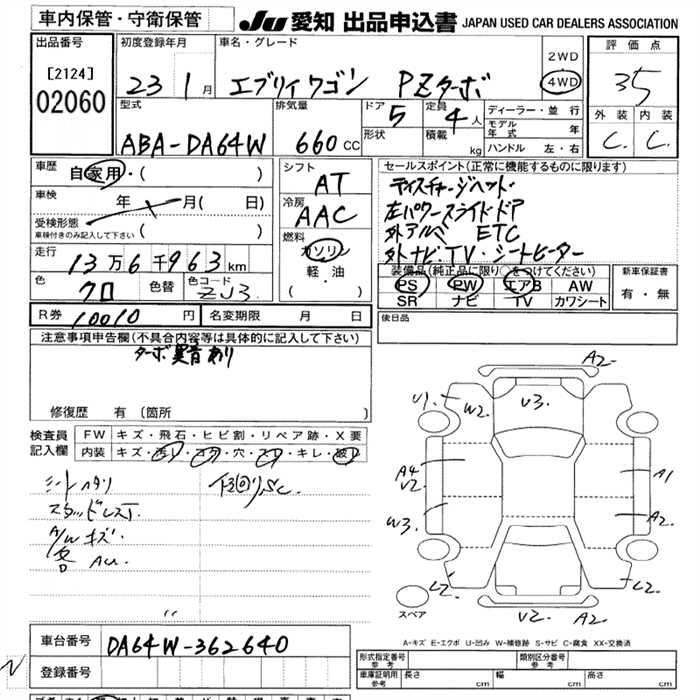 車内保管・守衛保管
JU 愛知 出品申込書 JAPAN USED CAR DEALERS ASSOCIATION
出品番号 初度登録年月 車名・グレード 評価点
[2124] 2WD
02060 23年 1月 エブリィワゴン PZターボ 4WD 3.5
型式 排気量 ドア 定員 ディーラー・並行 外装 内装
ABA-DA64W 660cc 5 4人 モデル年式 年 C. C.
形状 積載 kg ハンドル 左・右
車歴 自家用・( ) シフト AT セールスポイント(正常に機能するものに限ります)
車検 年 月( 日) 冷房 AAC ディスチャージヘット・
受検形態 左パワースライドドア
車検付きのみ記入して下さい ( ) 燃料 ガソリン 外アルバ ETC
走行 13万6千963km 軽・油 外ナビ・TV・シートヒーター
色 クロ 色替 色コード ZJ3 ・( ) 装備品(純正品に限り○をつけてください) 新車保証書
PS PW エアB AW 有・無
SR ナビ TV カワシート
R券 10010円 名変期限 月 日 後日品
注意事項申告欄(不具合内容等は具体的に記入して下さい)
ターボ異音あり
修復歴 有 (箇所 )
検査員記入欄 FW キズ・飛石・ヒビ割・リペア跡・X要
内装 キズ・汚レ・コゲ・穴・スレ・キレ・破レ
シートヘタリ 下回りS,C
スタッドレス
A/Wキズ
A2
U1 W2 V3
A4 A1
V2
W3 A2
L2 L2
V2 A2
スペア
A-キズ E-エクボ U-凹み W-補修跡 S-サビ C-腐食 XX-交換済
車台番号 DA64W-362640
登録番号
形式指定番号 参考 類別区分番号 参考
車庫証明用 参考 長さ cm 幅 cm 高さ cm